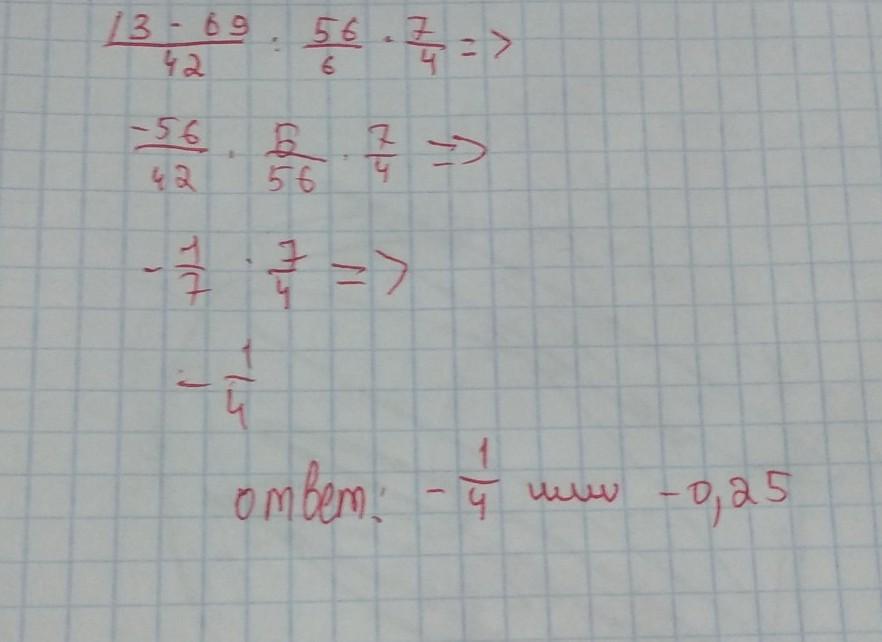 13 - 69/42 : 56/6 · 7/4 =>
-56/42 · 6/56 · 7/4 =>
- 1/7 · 7/4 =>
- 1/4
ответ: - 1/4 или -0,25